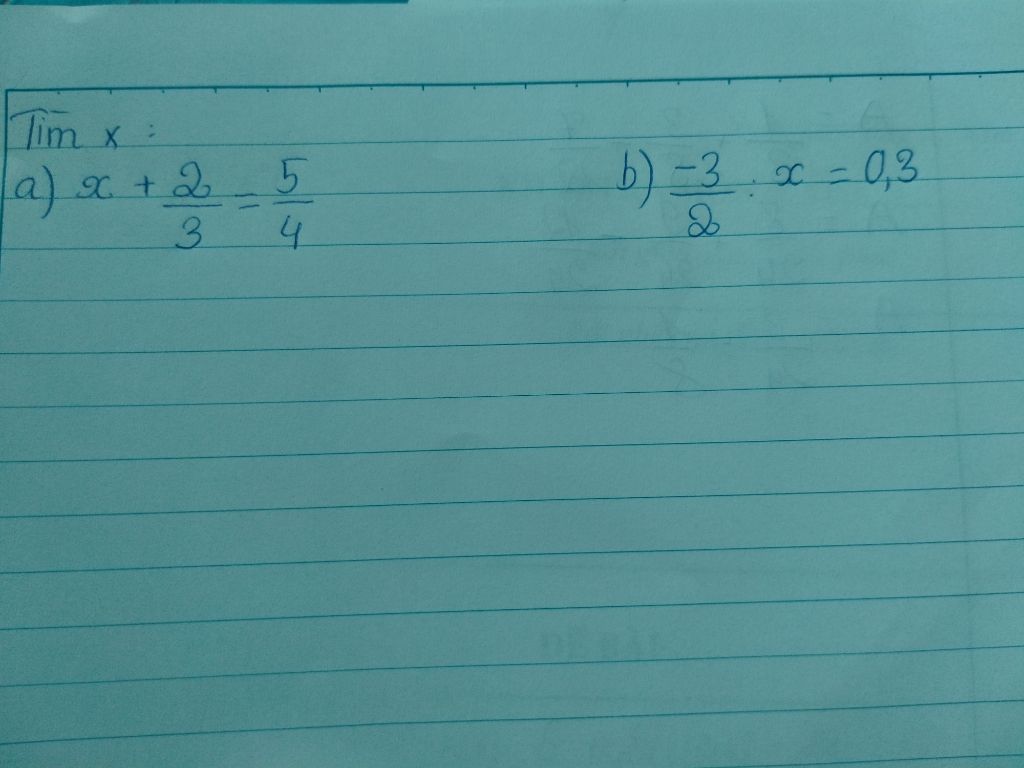 Tìm x :
a) x + 2/3 = 5/4 b) -3/2 : x = 0,3